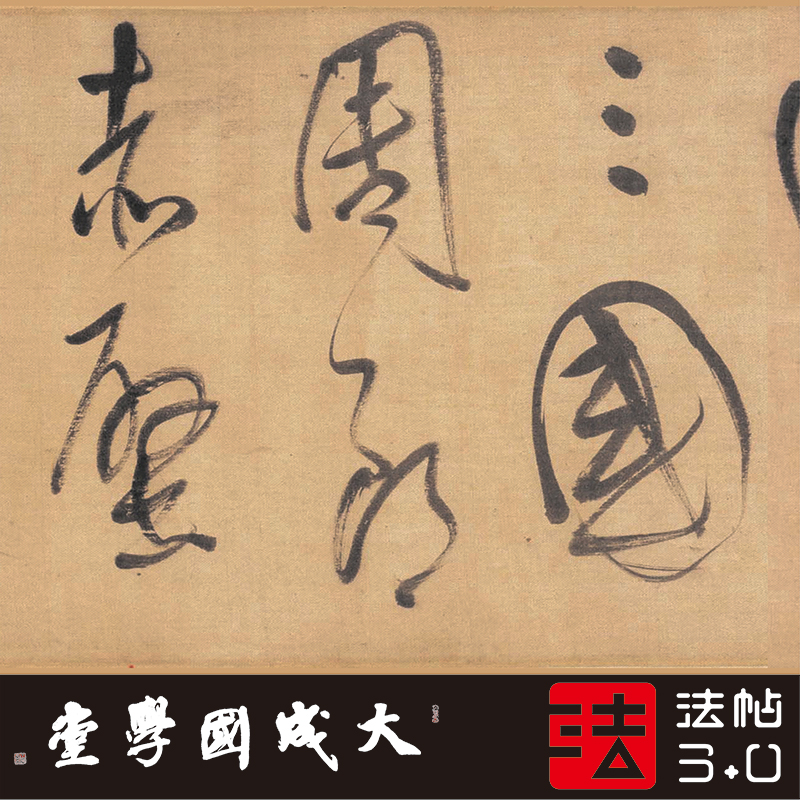 三國
周郎
赤壁
大成國學堂
法
法帖
3.0